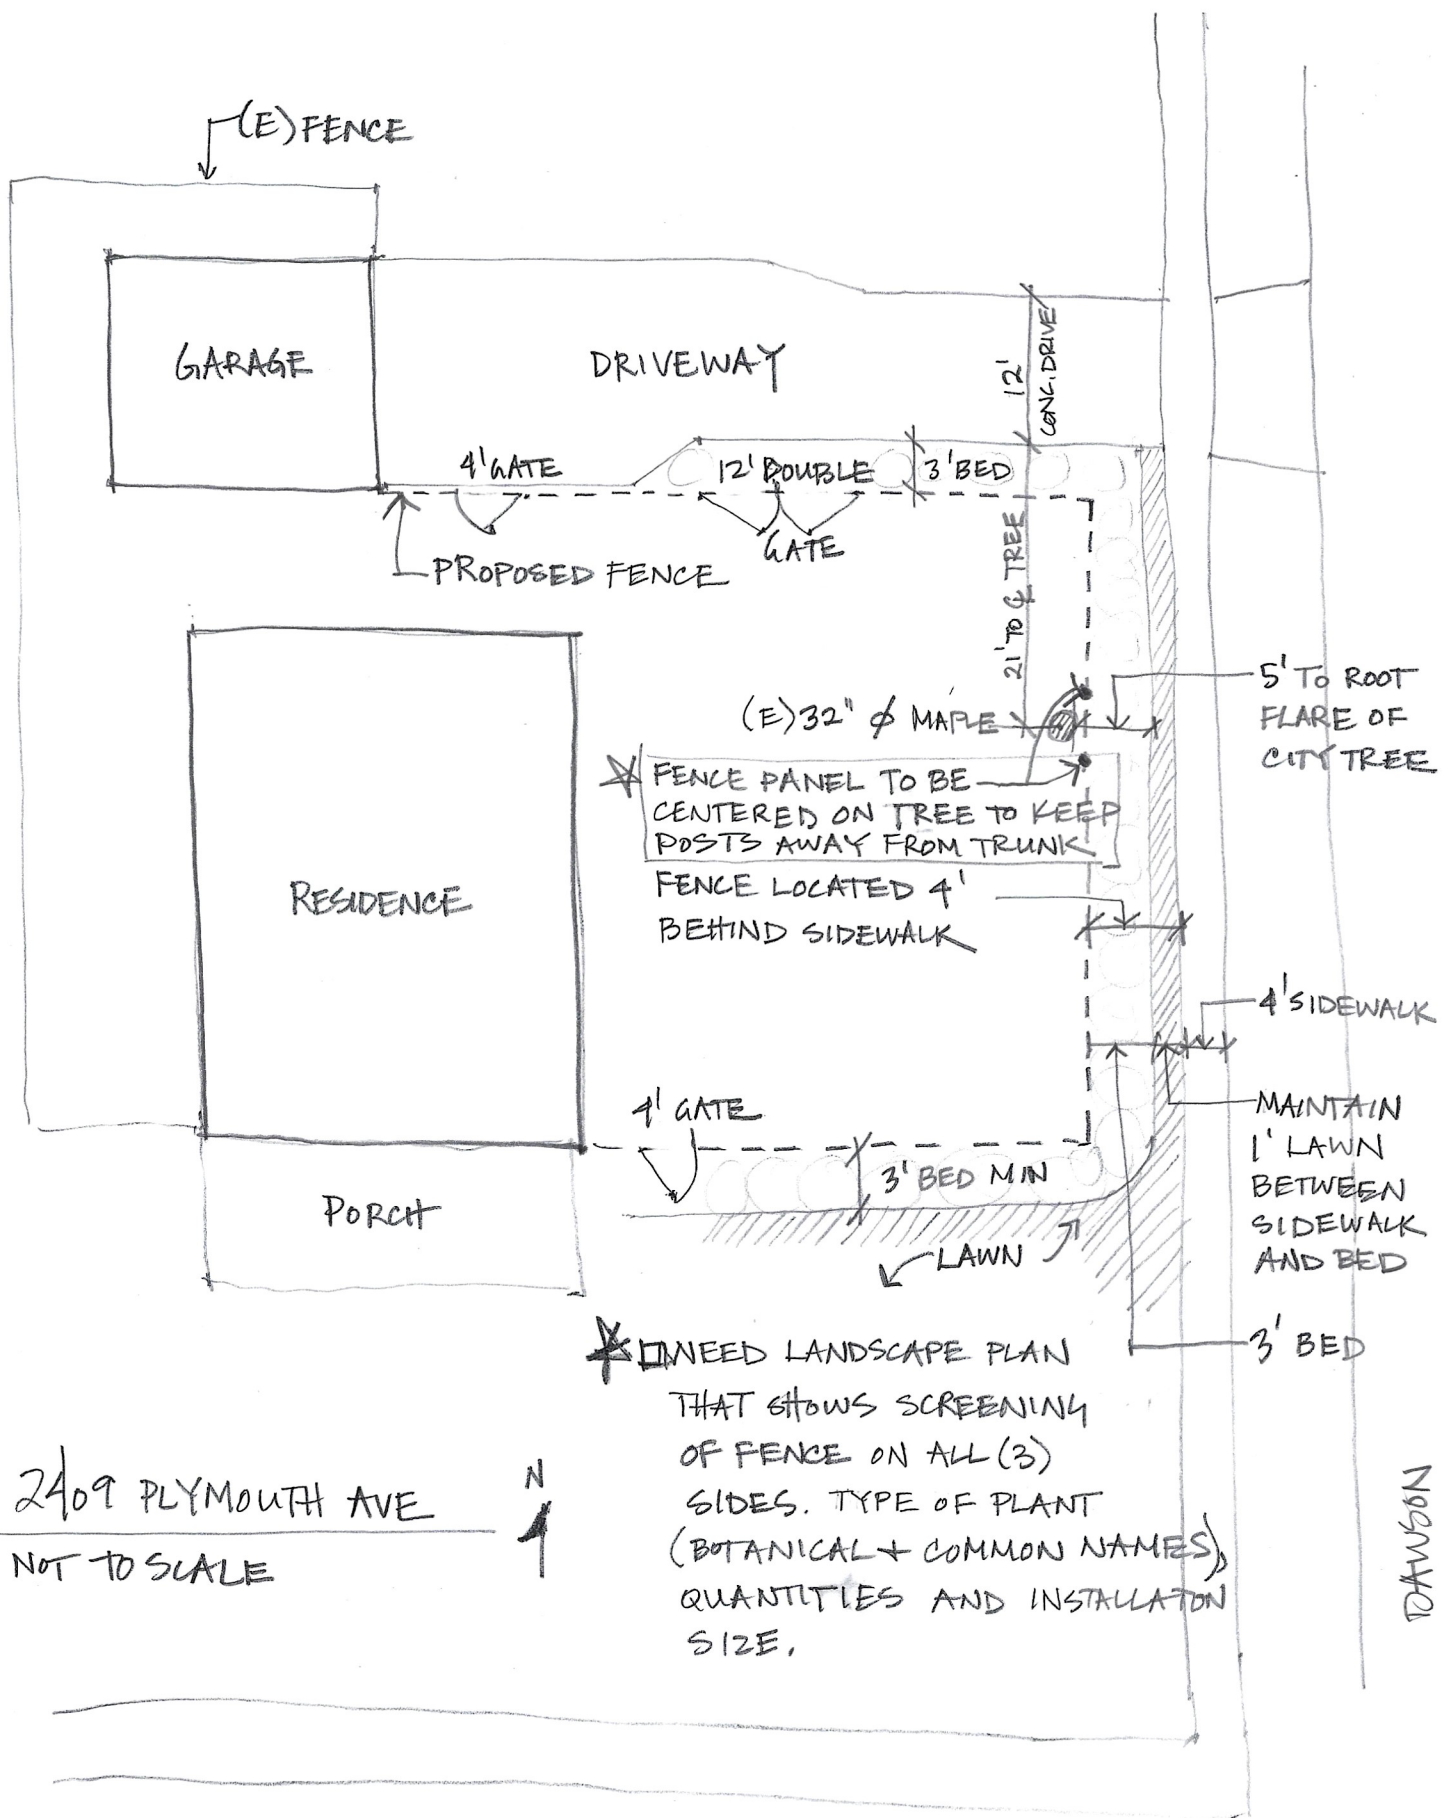 (E) FENCE
GARAGE
DRIVEWAY
12'
CONC. DRIVE
4' GATE
12' DOUBLE
GATE
3' BED
PROPOSED FENCE
21' TO ℄ TREE
(E) 32" ϕ MAPLE
5' TO ROOT
FLARE OF
CITY TREE
FENCE PANEL TO BE
CENTERED ON TREE TO KEEP
POSTS AWAY FROM TRUNK
FENCE LOCATED 4'
BEHIND SIDEWALK
RESIDENCE
4' SIDEWALK
MAINTAIN
1' LAWN
BETWEEN
SIDEWALK
AND BED
4' GATE
3' BED MIN
PORCH
LAWN
3' BED
NEED LANDSCAPE PLAN
THAT SHOWS SCREENING
OF FENCE ON ALL (3)
SIDES. TYPE OF PLANT
(BOTANICAL + COMMON NAMES),
QUANTITIES AND INSTALLATON
SIZE.
2409 PLYMOUTH AVE
NOT TO SCALE
N
DAWSON